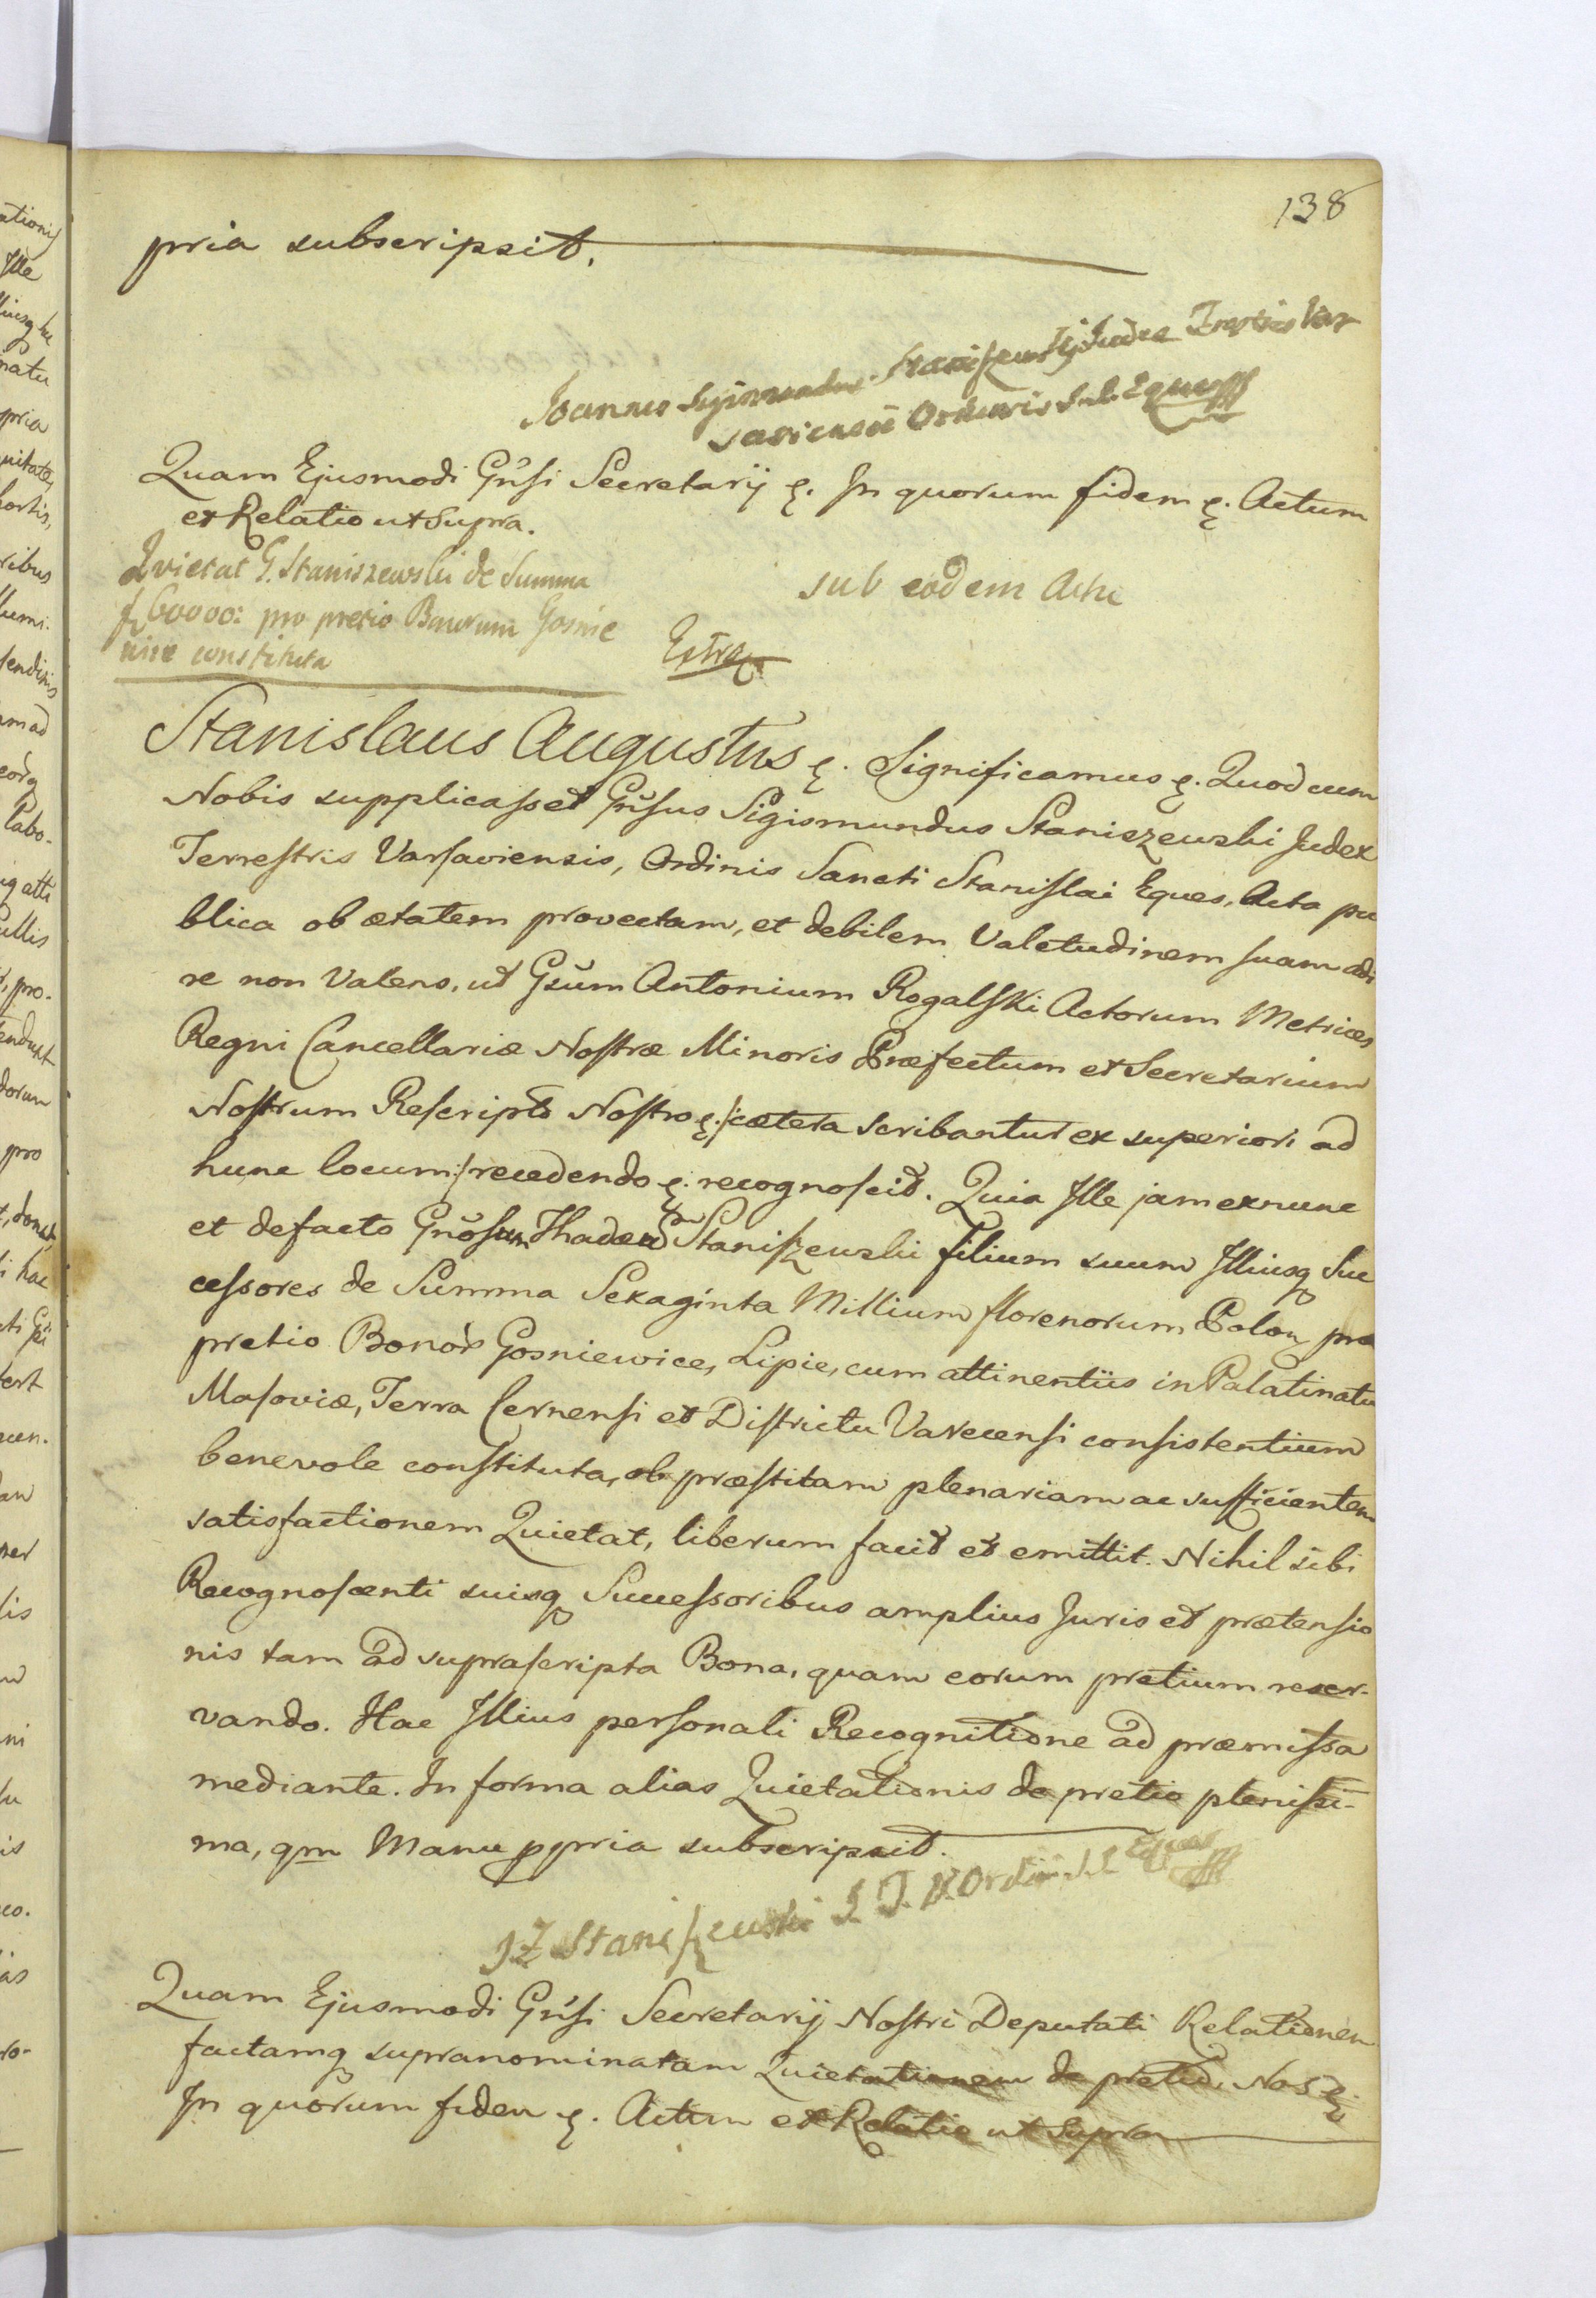 138
pria subscripsit.
Joannes Sigismundus Staniszewski Judex Trestris Var
saviensis Ordinis S. S. Eques
Quam Ejusmodi Gnsi Secretarij &. In quorum fidem &. Actum
et Relatio ut Supra.
Quietat G. Staniszewski de Summa
f 60000: pro pretio Bonorum Gosnie
wice constituta
sub eodem Actu
Extra
Stanislaus Augustus &. Significamus &. Quod cum
Nobis supplicasset Gnsus Sigismundus Staniszewski Judex
Terrestris Varsaviensis, Ordinis Sancti Stanislai Eques, Acta pu
blica ob ætatem provectam, et debilem Valetudinem suam adi
re non Valens, ut Gsum Antonium Rogalski Actorum Metrices
Regni Cancellariæ Nostræ Minoris Præfectum et Secretarium
Nostrum Rescripto Nostro &./:cætera scribantur ex superiori ad
hunc locum:/ recedendo &. recognoscit. Quia Ille jam exnunc
et defacto Gnosum Thadæum Staniszewski filium suum Illiusq Suc
cessores de Summa Sexaginta Millium florenorum Polon pro
pretio Bonor Gosniewice, Lipie, cum attinentiis in Palatinatu
Masoviæ, Terra Cernensi et Districtu Varecensi consistentium
benevole constituta, ob præstitam plenariam ac sufficientem
satisfactionem Quietat, liberum facit et emittit. Nihil sibi
Recognoscenti suisq Successoribus amplius Juris et prætensio
nis tam ad suprascripta Bona, quam eorum pretium reser-
vando. Hac Illius personali Recognitione ad præmissa
mediante. In forma alias Quietationis de pretio plenissi-
ma, qm Manu ppria subscripsit.
J Z Staniszewski S. T. V. Ordin S. S. Eques
Quam Ejusmodi Gnsi Secretarij Nostri Deputati Relationem
factamq supranominatam Quietationem de pretio, Nos &.
In quorum fidem &. Actum et Relatio ut Supra